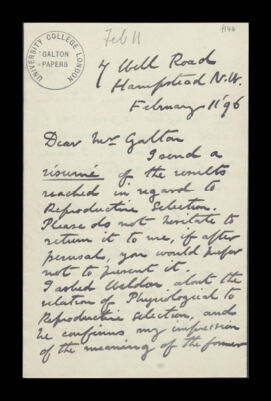 Feb 11
A46
UNIVERSITY COLLEGE LONDON
GALTON
PAPERS
7 Well Road
Hampstead N.W.
February 11 '96
Dear Mr Galton
I send a
résumé of the results
reached in regard to
Reproductive Selection.
Please do not hesitate to
return it to me, if after
perusal, you would prefer
not to present it.
I asked Weldon about the
relation of Physiological to
Reproductive Selection, and
he confirms my impression
of the meaning of the former